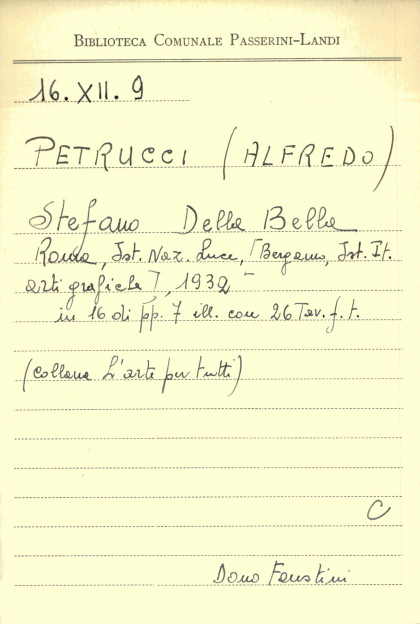 BIBLIOTECA COMUNALE PASSERINI-LANDI
16. XII. 9
PETRUCCI (ALFREDO)
Stefano Della Bella
Roma, Ist. Naz. Luce, [Bergamo, Ist. It.
arti grafiche], 1932 -
in 16 di pp. 7 ill. con 26 Tav. f. t.
(collana L'arte per tutti)
C
Dono Faustini